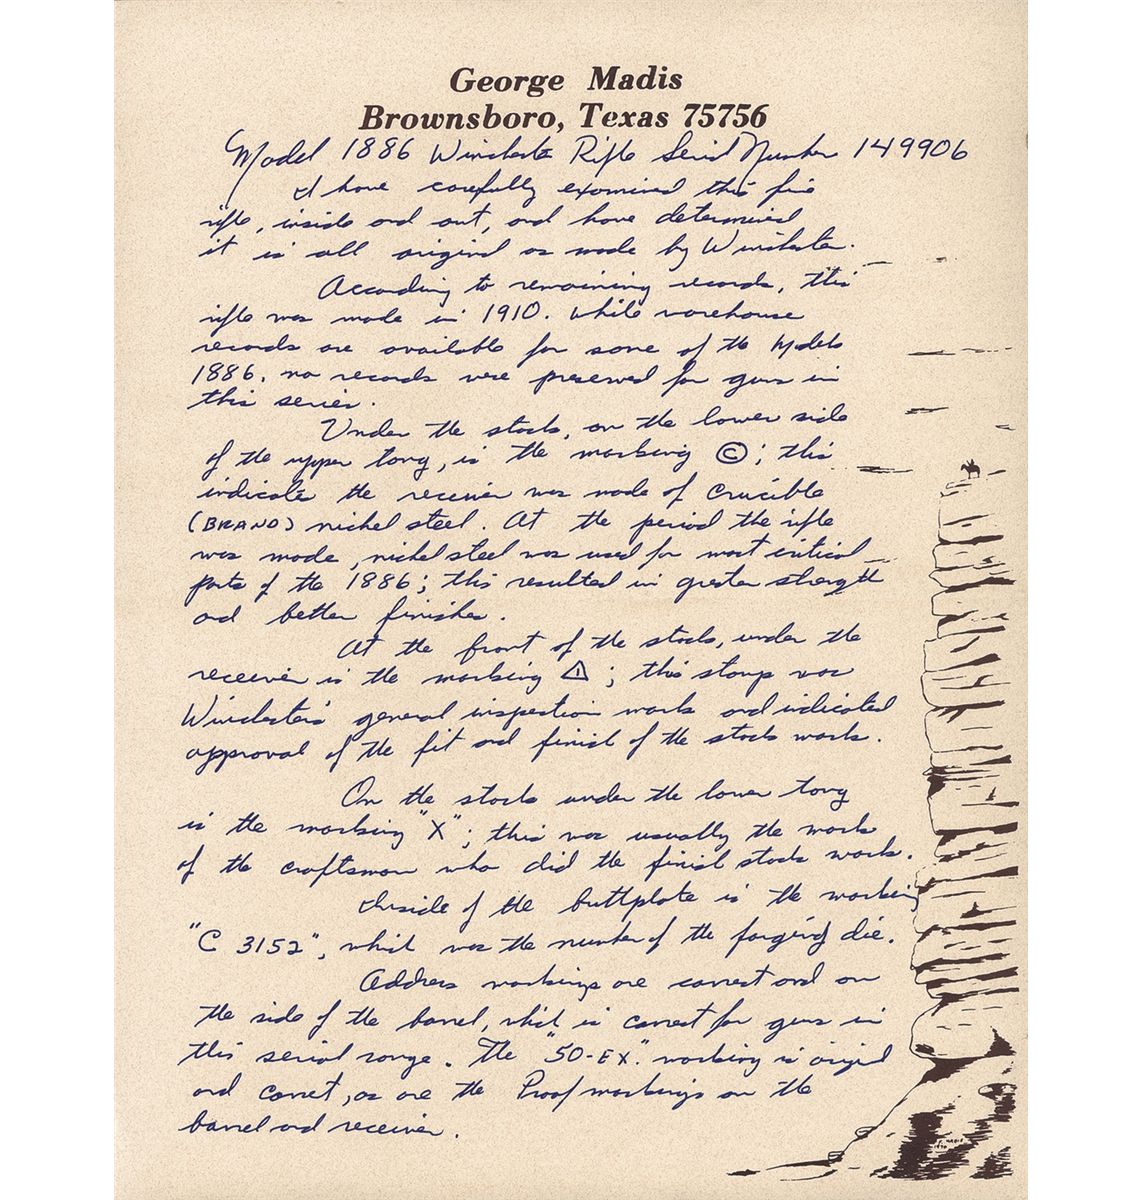 George Madis
Brownsboro, Texas 75756
Model 1886 Winchester Rifle Serial Number 149906
I have carefully examined this fine
rifle, inside and out, and have determined
it is all original as made by Winchester.
According to remaining records, this
rifle was made in 1910. While warehouse
records are available for some of the Models
1886, no records were preserved for guns in
this series.
Under the stock, on the lower side
of the upper tang, is the marking ©; this
indicates the receiver was made of Crucible
(BRAND) nickel steel. At the period the rifle
was made, nickel steel was used for most critical
parts of the 1886; this resulted in greater strength
and better finishes.
At the front of the stock, under the
receiver is the marking ⚠; this stamp was
Winchester's general inspection mark and indicated
approval of the fit and finish of the stock work.
On the stock under the lower tang
is the marking "X"; this was usually the mark
of the craftsman who did the finish stock work.
Inside of the buttplate is the marking
"C 3152", which was the number of the forging die.
Address markings are correct and on
the side of the barrel, which is correct for guns in
this serial range. The "50-EX." marking is original
and correct, as are the Proof markings on the
barrel and receiver.